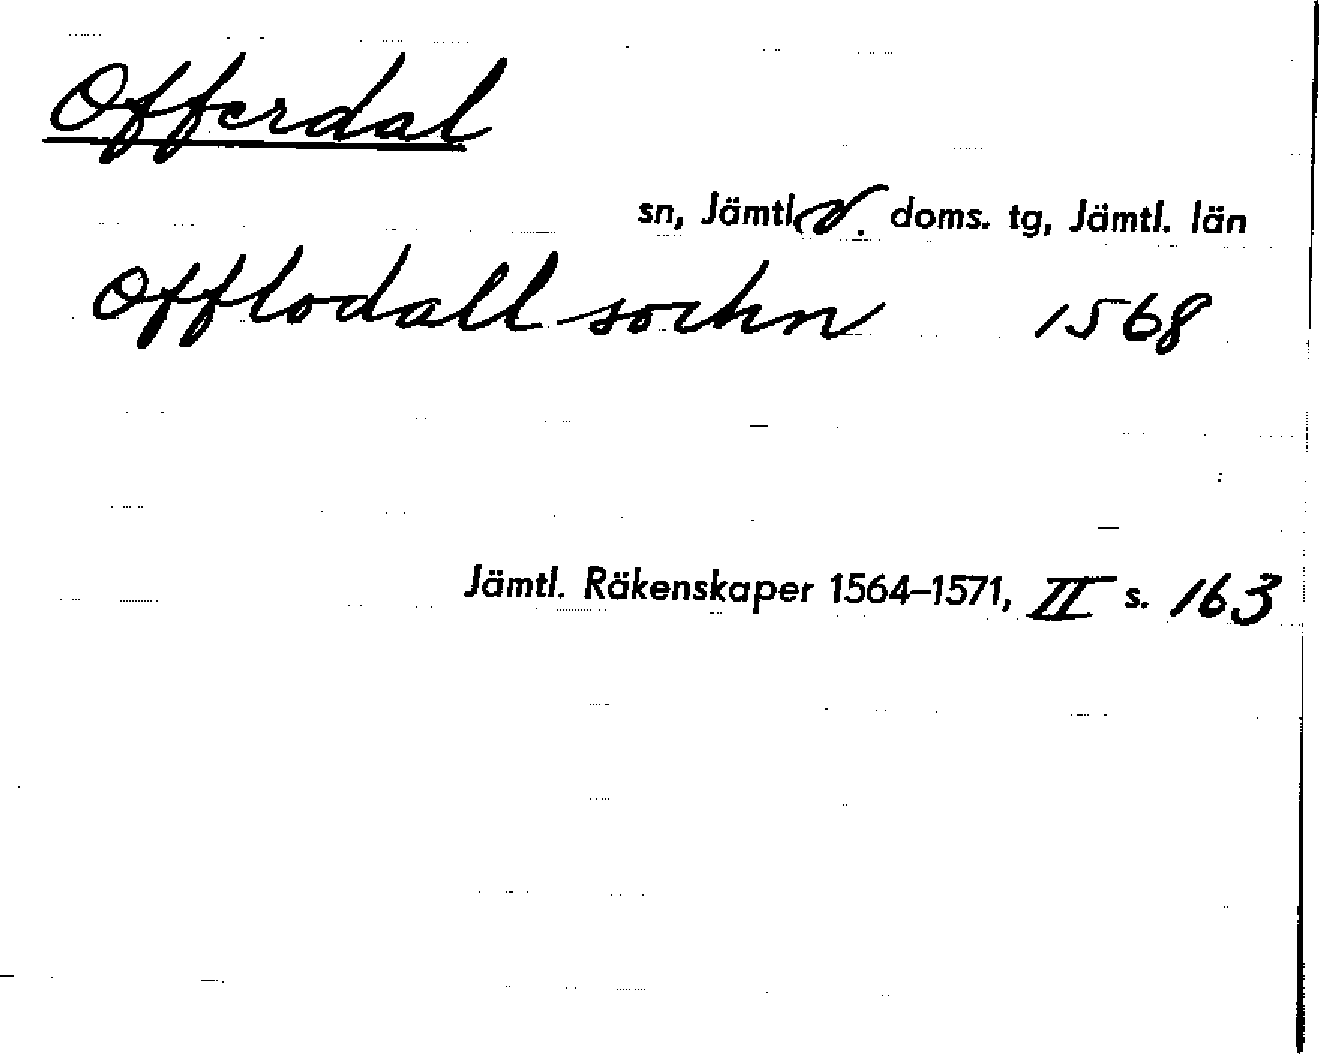 Offerdal
sn, Jämtl. V. doms. tg, Jämtl. län
Offlodall sochn 1568
Jämtl. Räkenskaper 1564–1571, II s. 163